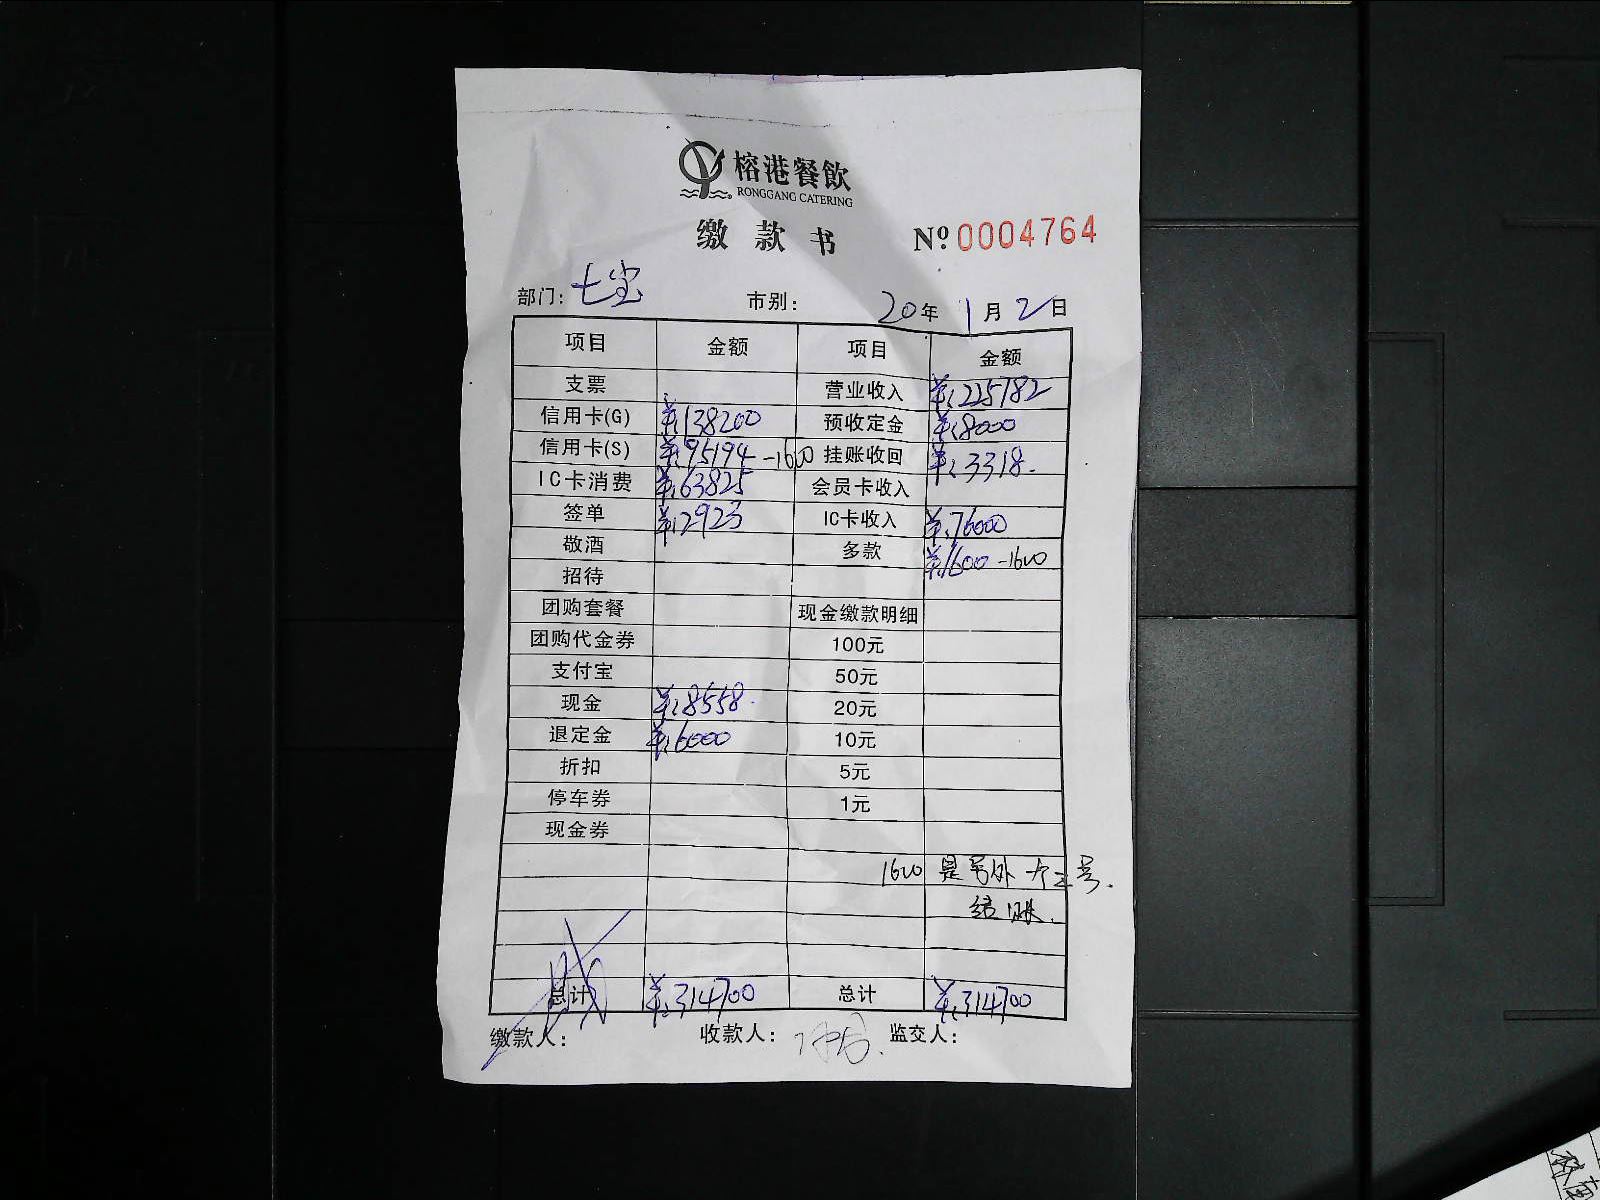 榕港餐飲
RONGGANG CATERING
缴款书 Nº 0004764
部门: 七宝 市别: 20年 1月 2日
项目 金额 项目 金额
支票 营业收入 ¥:225782
信用卡(G) ¥:138200 预收定金 ¥:8000
信用卡(S) ¥:95194 -1600 挂账收回 ¥:3318.
IC卡消费 ¥:63825 会员卡收入
签单 ¥:2923 IC卡收入 ¥:76000
敬酒 多款 ¥:1600 -1600
招待
团购套餐 现金缴款明细
团购代金券 100元
支付宝 50元
现金 ¥:8558. 20元
退定金 ¥:6000 10元
折扣 5元
停车券 1元
现金券
1600 是另外一个三号.
结账.
总计 ¥:314700 总计 ¥:314700
缴款人: 收款人: 监交人: